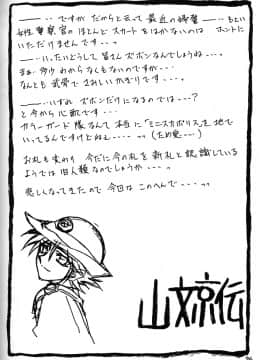 ―――‥ ですが だからと云って 最近の婦警 ――‥もとい
女性警察官の ほとんど スカートをはかないのは ホントに
いただけません です・・・っ
――‥いったいどうして 皆さん ズボンなんでしょうね・・・。
まぁ 今少 わからなくもないのですが・・・
なんとも 武骨で さみしいかぎりです・・・。
―――‥いずれ ズボンだけになるのでは・・・?
と今から 心配です・・・
カラーガード隊なんて 本当に「ミニスカポリス」を地で
いってるんですけどねぇ・・・・っっ(ため息・・・)
お札も変わり 今だに 今の札を 新札と認識している
ようでは 旧人種なのでしょうか・・・・っ
悲しくなってきたので 今回は このへんで・・・・っっ
山文京伝